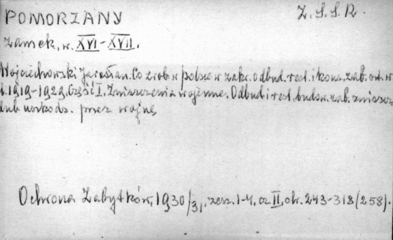 POMORZANY Z.S.S.R.
Zamek, w. XVI-XVII.
Wojciechowski Jarosław. Co zrob. w polsce w zakr. odbud. rest. i kons. zab. arch. w
l. 1919-1929. Część I. Zniszczenia wojenne. Odbud. i rest. budow. zab. zniszcz.
lub uszkodz. przez wojnę
Ochrona Zabytków, 1930/31, zesz. 1-4, cz. II, str. 243-318 (258).